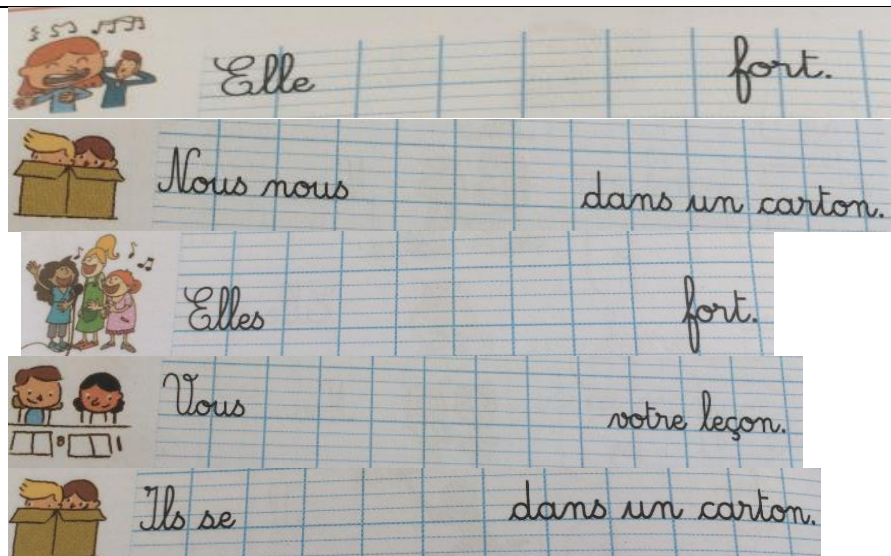 Elle fort.
Nous nous dans un carton.
Elles fort.
Vous votre leçon.
Ils se dans un carton.